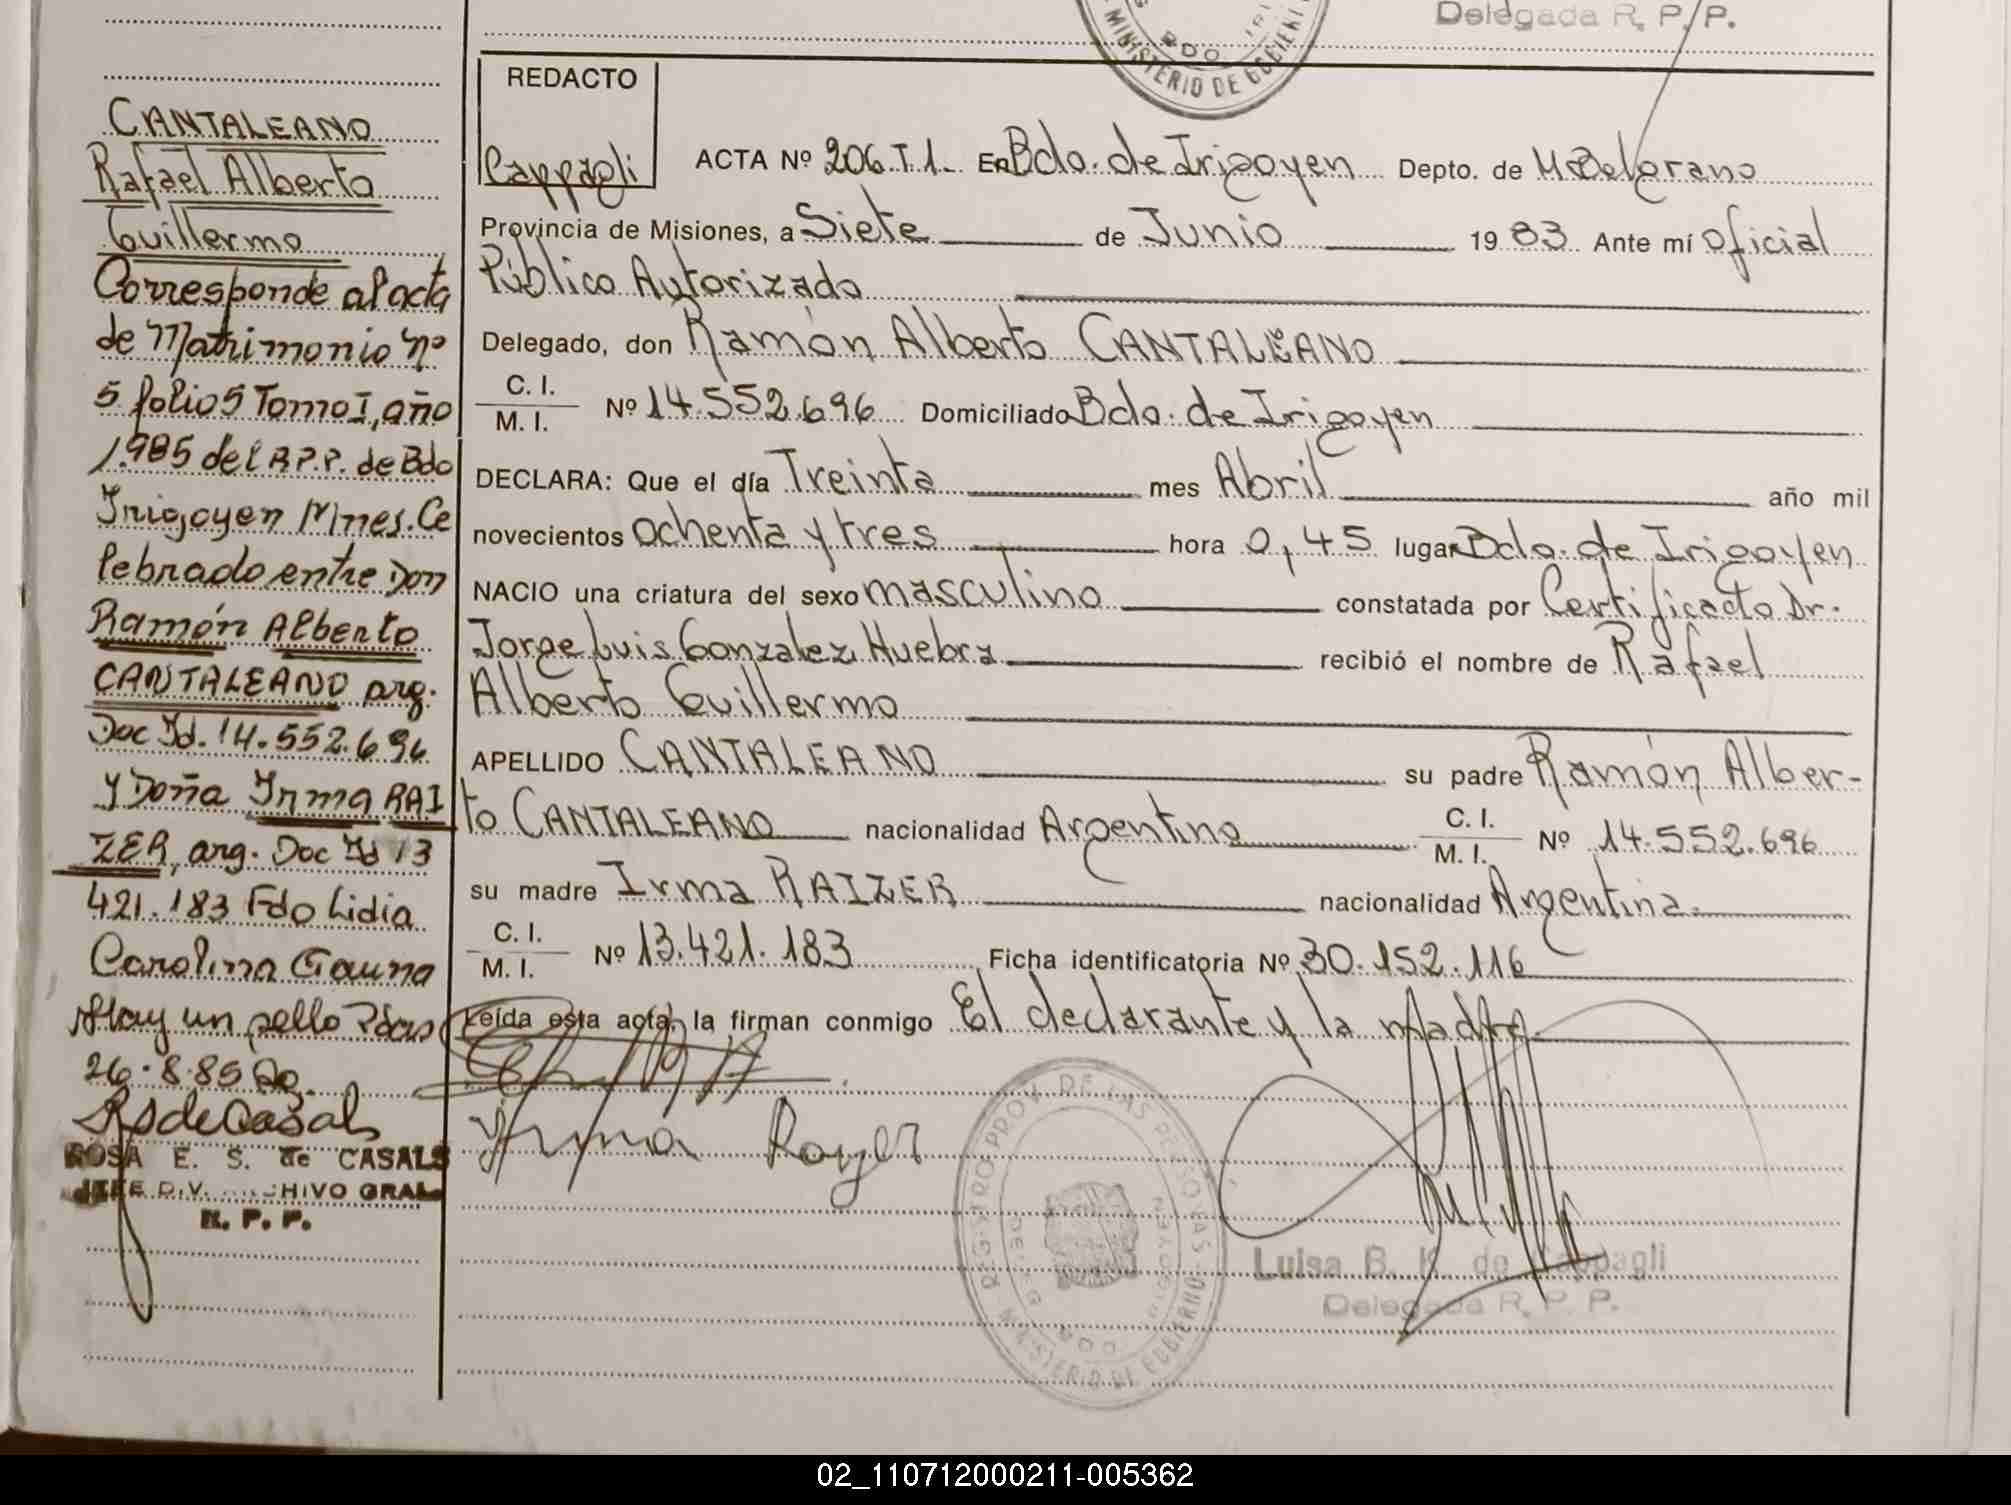 Delegada R. P. P.
MINISTERIO DE GOBIERNO
CANTALEANO
Rafael Alberto
Guillermo
Corresponde al acta
de Matrimonio nº
5 folio 5 Tomo I, año
1.985 del R.P.P. de Bdo
Irigoyen Mnes. Ce
lebrado entre Don
Ramón Alberto
CANTALEANO arg.
Doc Id. 14.552.696
y Doña Irma RAI
ZER, arg. Doc Id 13
421.183 Fdo Lidia
Carolina Gauna
Hay un sello Pdas
26.8.85
RSdeCasals
ROSA E. S. de CASALS
JEFE DIV. ARCHIVO GRAL
R. P. P.
REDACTO
Cappagli
ACTA Nº 206.T.1. EN Bdo. de Irigoyen Depto. de M Belgrano
Provincia de Misiones, a Siete de Junio 1983 Ante mí Oficial
Público Autorizado
Delegado, don Ramón Alberto CANTALEANO
C. I.
M. I. Nº 14.552.696 Domiciliado Bdo. de Irigoyen
DECLARA: Que el día Treinta mes Abril año mil
novecientos ochenta y tres hora 0,45 lugar Bdo. de Irigoyen
NACIO una criatura del sexo masculino constatada por Certificado Dr.
Jorge Luis Gonzalez Huebra recibió el nombre de Rafael
Alberto Guillermo
APELLIDO CANTALEANO su padre Ramón Alber-
to CANTALEANO nacionalidad Argentino C. I. M. I. Nº 14.552.696
su madre Irma RAIZER nacionalidad Argentina.
C. I.
M. I. Nº 13.421.183 Ficha identificatoria Nº 30.152.116
Leída esta acta, la firman conmigo El declarante y la madre
Irma Royer
REGISTRO PROV. DE LAS PERSONAS
MINISTERIO DE GOBIERNO
DELEG. BDO. IRIGOYEN
Luisa B. K. de Cappagli
Delegada R. P. P.
02_110712000211-005362